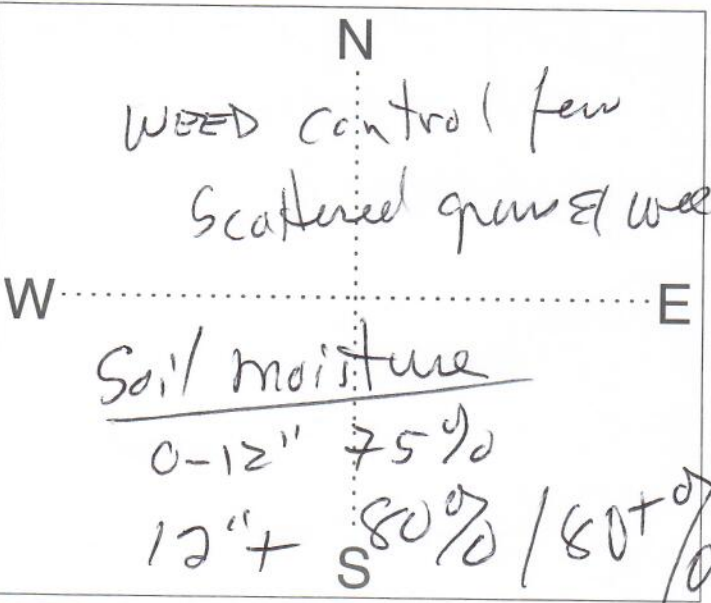 N
WEED control few
Scattered grass & wee
W E
Soil moisture
0-12" 75%
12"+ 80% / 80+%
S